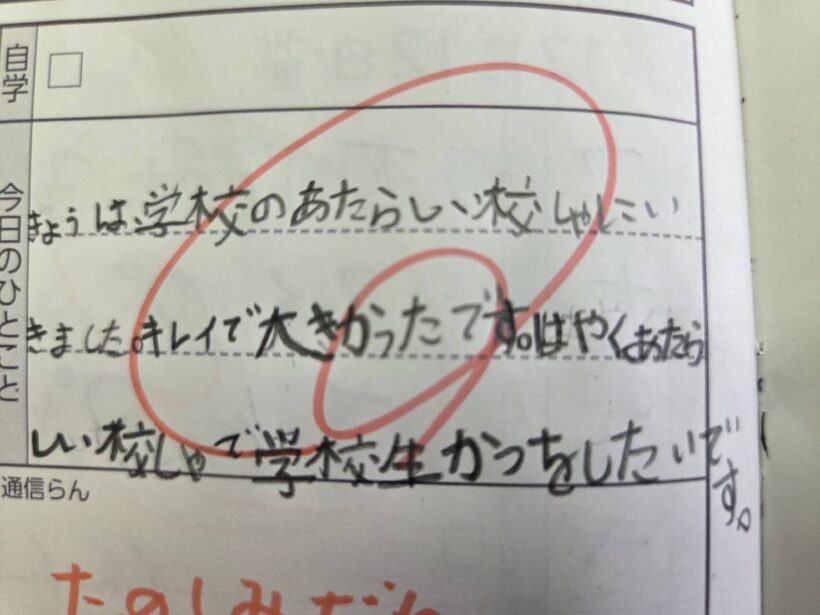 自学
今日のひとこと
きょうは学校のあたらしい校しゃにい
きました。キレイで大きかったです。はやくあたら
しい校しゃで学校生かつをしたいです。
通信らん
たのしみだね